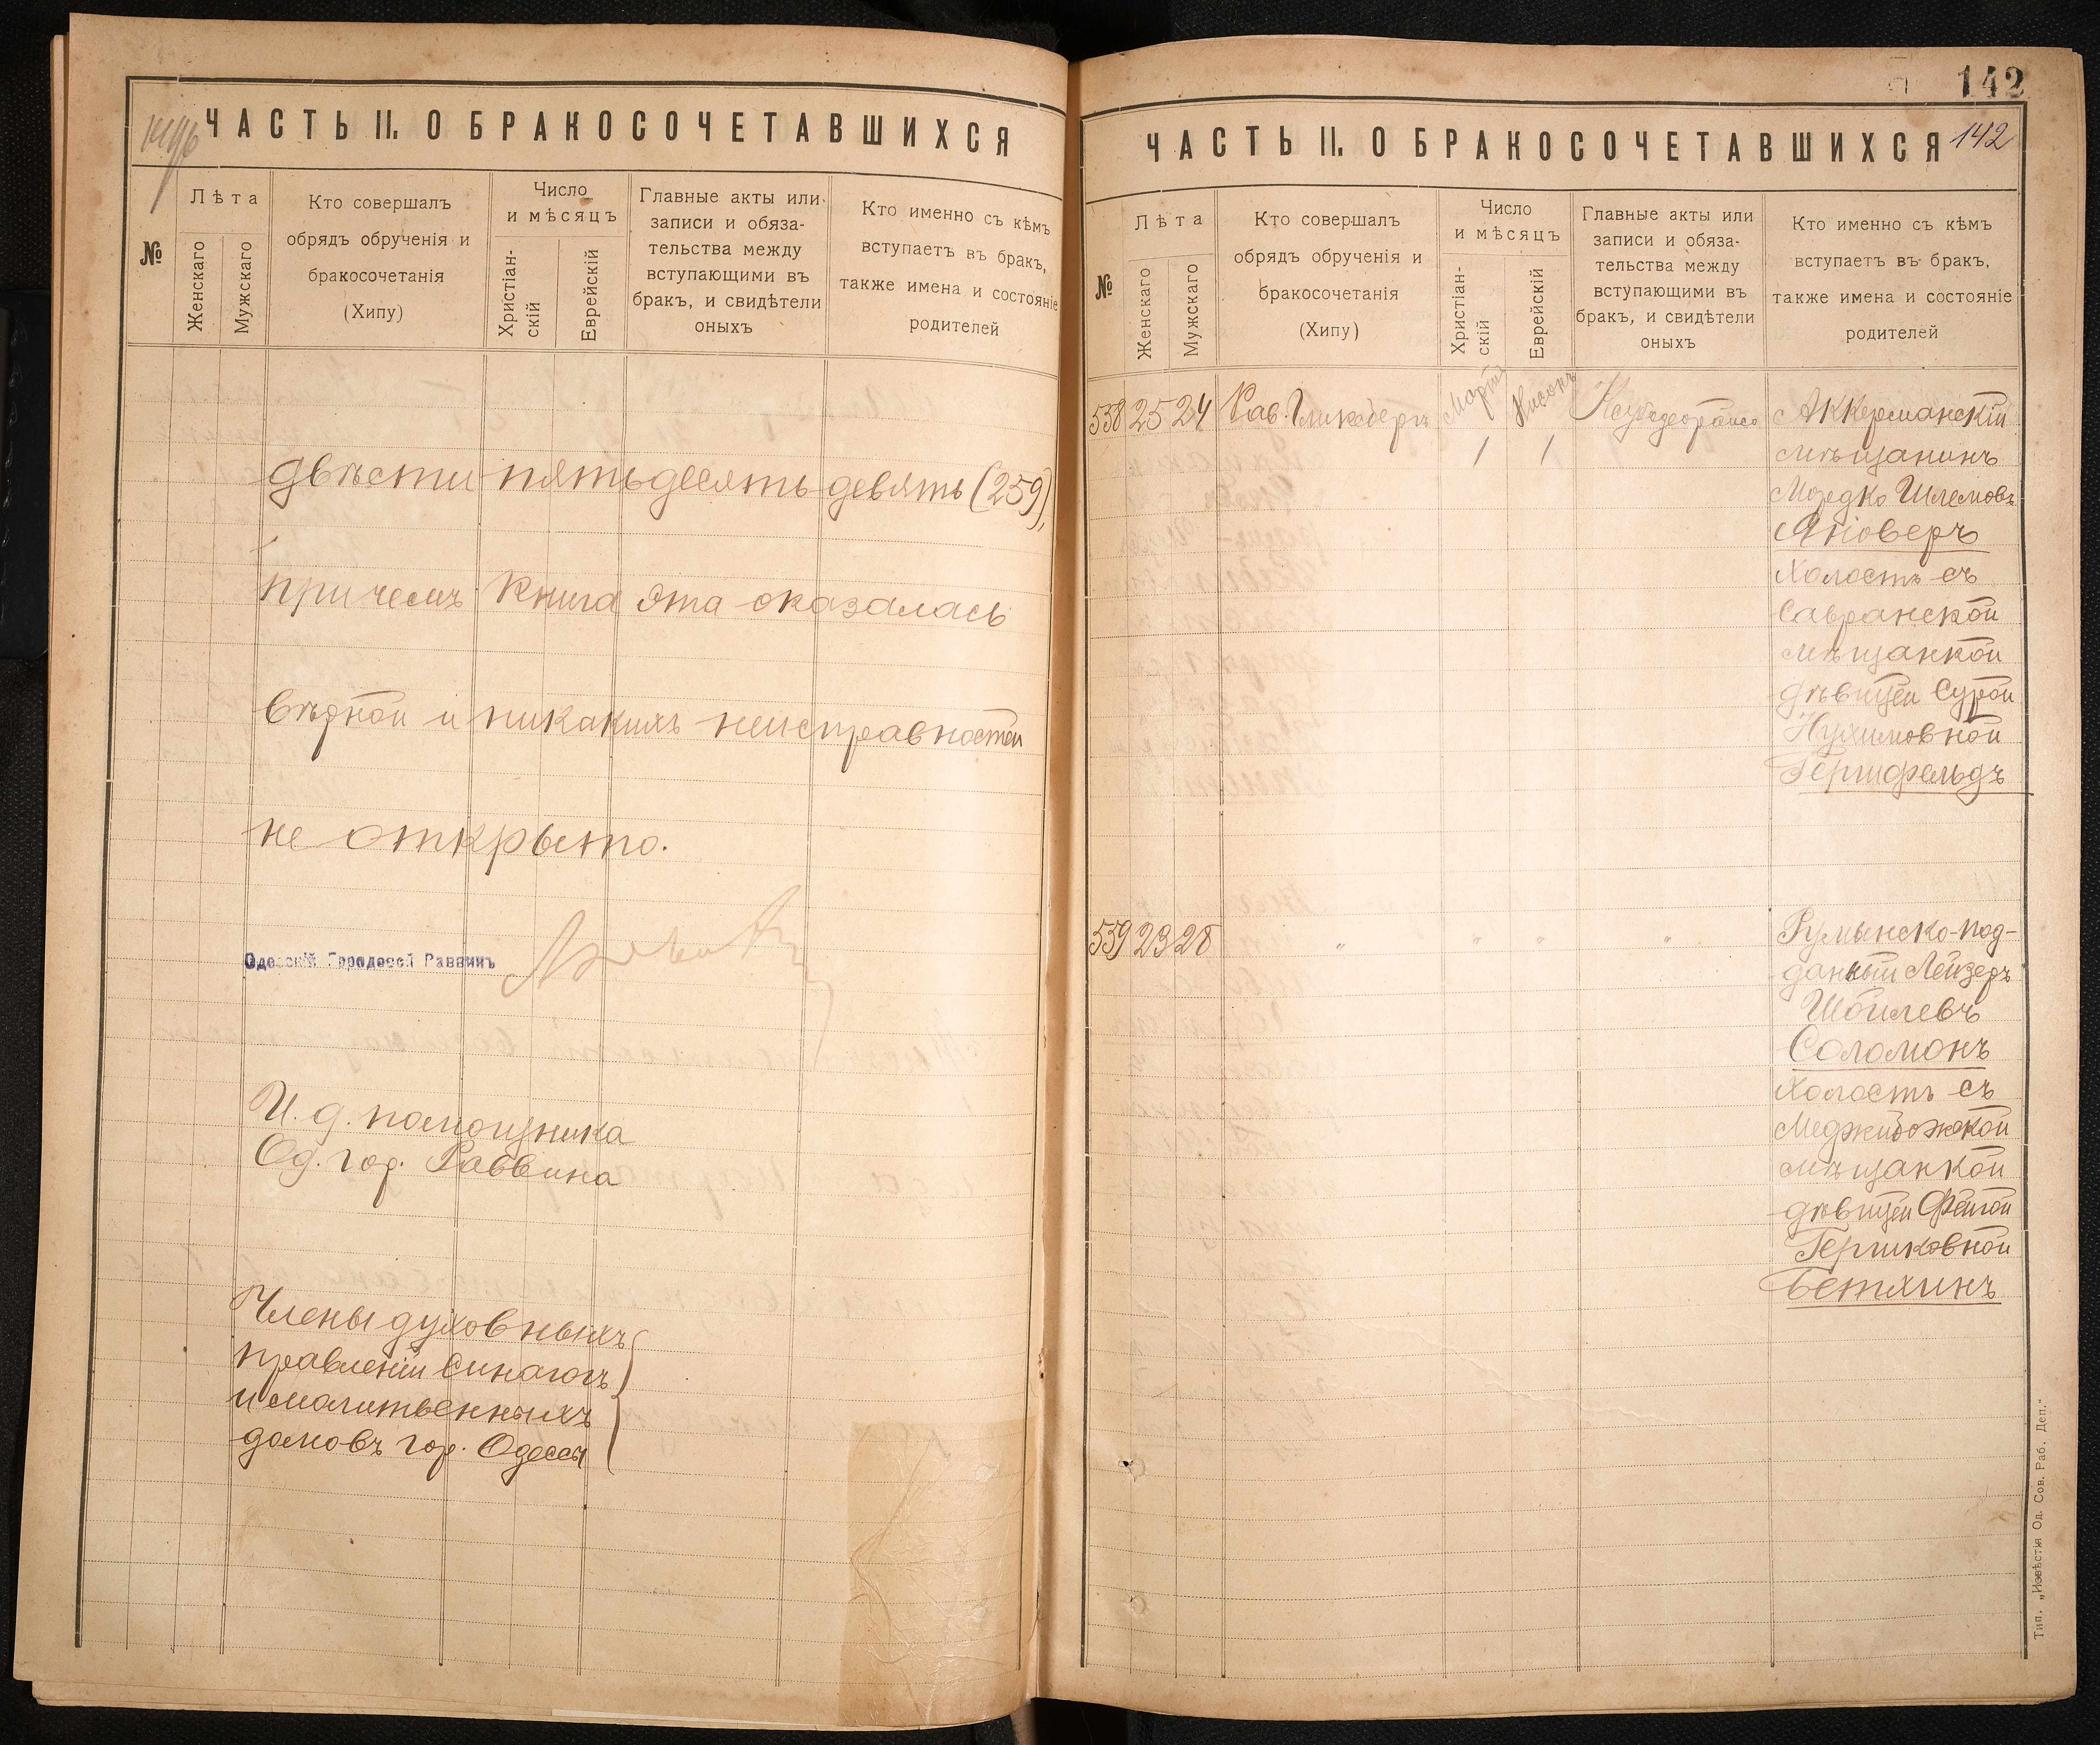 ЧАСТЬ II. О БРАКОСОЧЕТАВШИХСЯ
№
Лѣта
Женскаго
Мужскаго
Кто совершалъ
обрядъ обрученія и
бракосочетанія
(Хипу)
Число
и мѣсяцъ
Христіан-
скій
Еврейскій
Главные акты или
записи и обяза-
тельства между
вступающими въ
бракъ, и свидѣтели
оныхъ
Кто именно съ кѣмъ
вступаетъ въ бракъ,
также имена и состояніе
родителей
двѣсти пятьдесятъ девять (259),
причемъ книга эта оказалась
вѣрной и никакихъ неисправностей
не открыто.
Одесскій Городовой Раввинъ
И. д. помощника
Од. гор. Раввина
Члены духовныхъ
правленій синагогъ
и молитвенныхъ
домовъ гор. Одессы
142
ЧАСТЬ II. О БРАКОСОЧЕТАВШИХСЯ 142
№
Лѣта
Женскаго
Мужскаго
Кто совершалъ
обрядъ обрученія и
бракосочетанія
(Хипу)
Число
и мѣсяцъ
Христіан-
скій
Еврейскій
Главные акты или
записи и обяза-
тельства между
вступающими въ
бракъ, и свидѣтели
оныхъ
Кто именно съ кѣмъ
вступаетъ въ бракъ,
также имена и состояніе
родителей
558 25 24 Рав. Гликсбергъ
Марта
1
Нисонъ
1
Аккерманскій
мѣщанинъ
Мордко Шлемовъ
Яновверъ
холостъ съ
Савранской
мѣщанкой
дѣвицей Сурой
Нухимовной
Герцфельдъ
559 23 28 " " " "
Румынско-под-
данный Лейзеръ
Шоилевъ
Соломонъ
холостъ съ
Меджибожской
мѣщанкой
дѣвицей Фейгой
Гершковной
Бетлинъ
Тип. „Извѣстія Од. Сов. Раб. Деп."